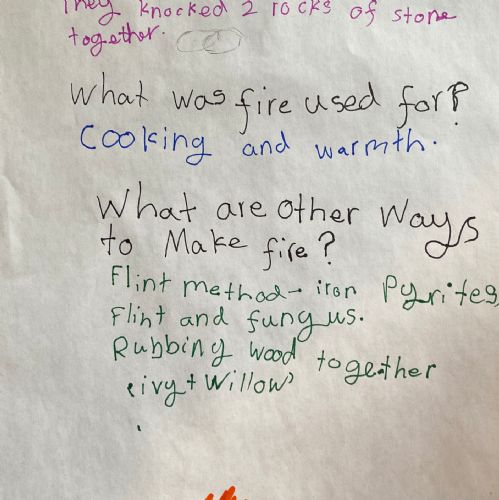 They knocked 2 rocks of stone
together.
What was fire used for?
Cooking and warmth.
What are other Ways
to Make fire?
Flint method - iron Pyrites
Flint and fungus.
Rubbing wood together
(ivy + Willow)